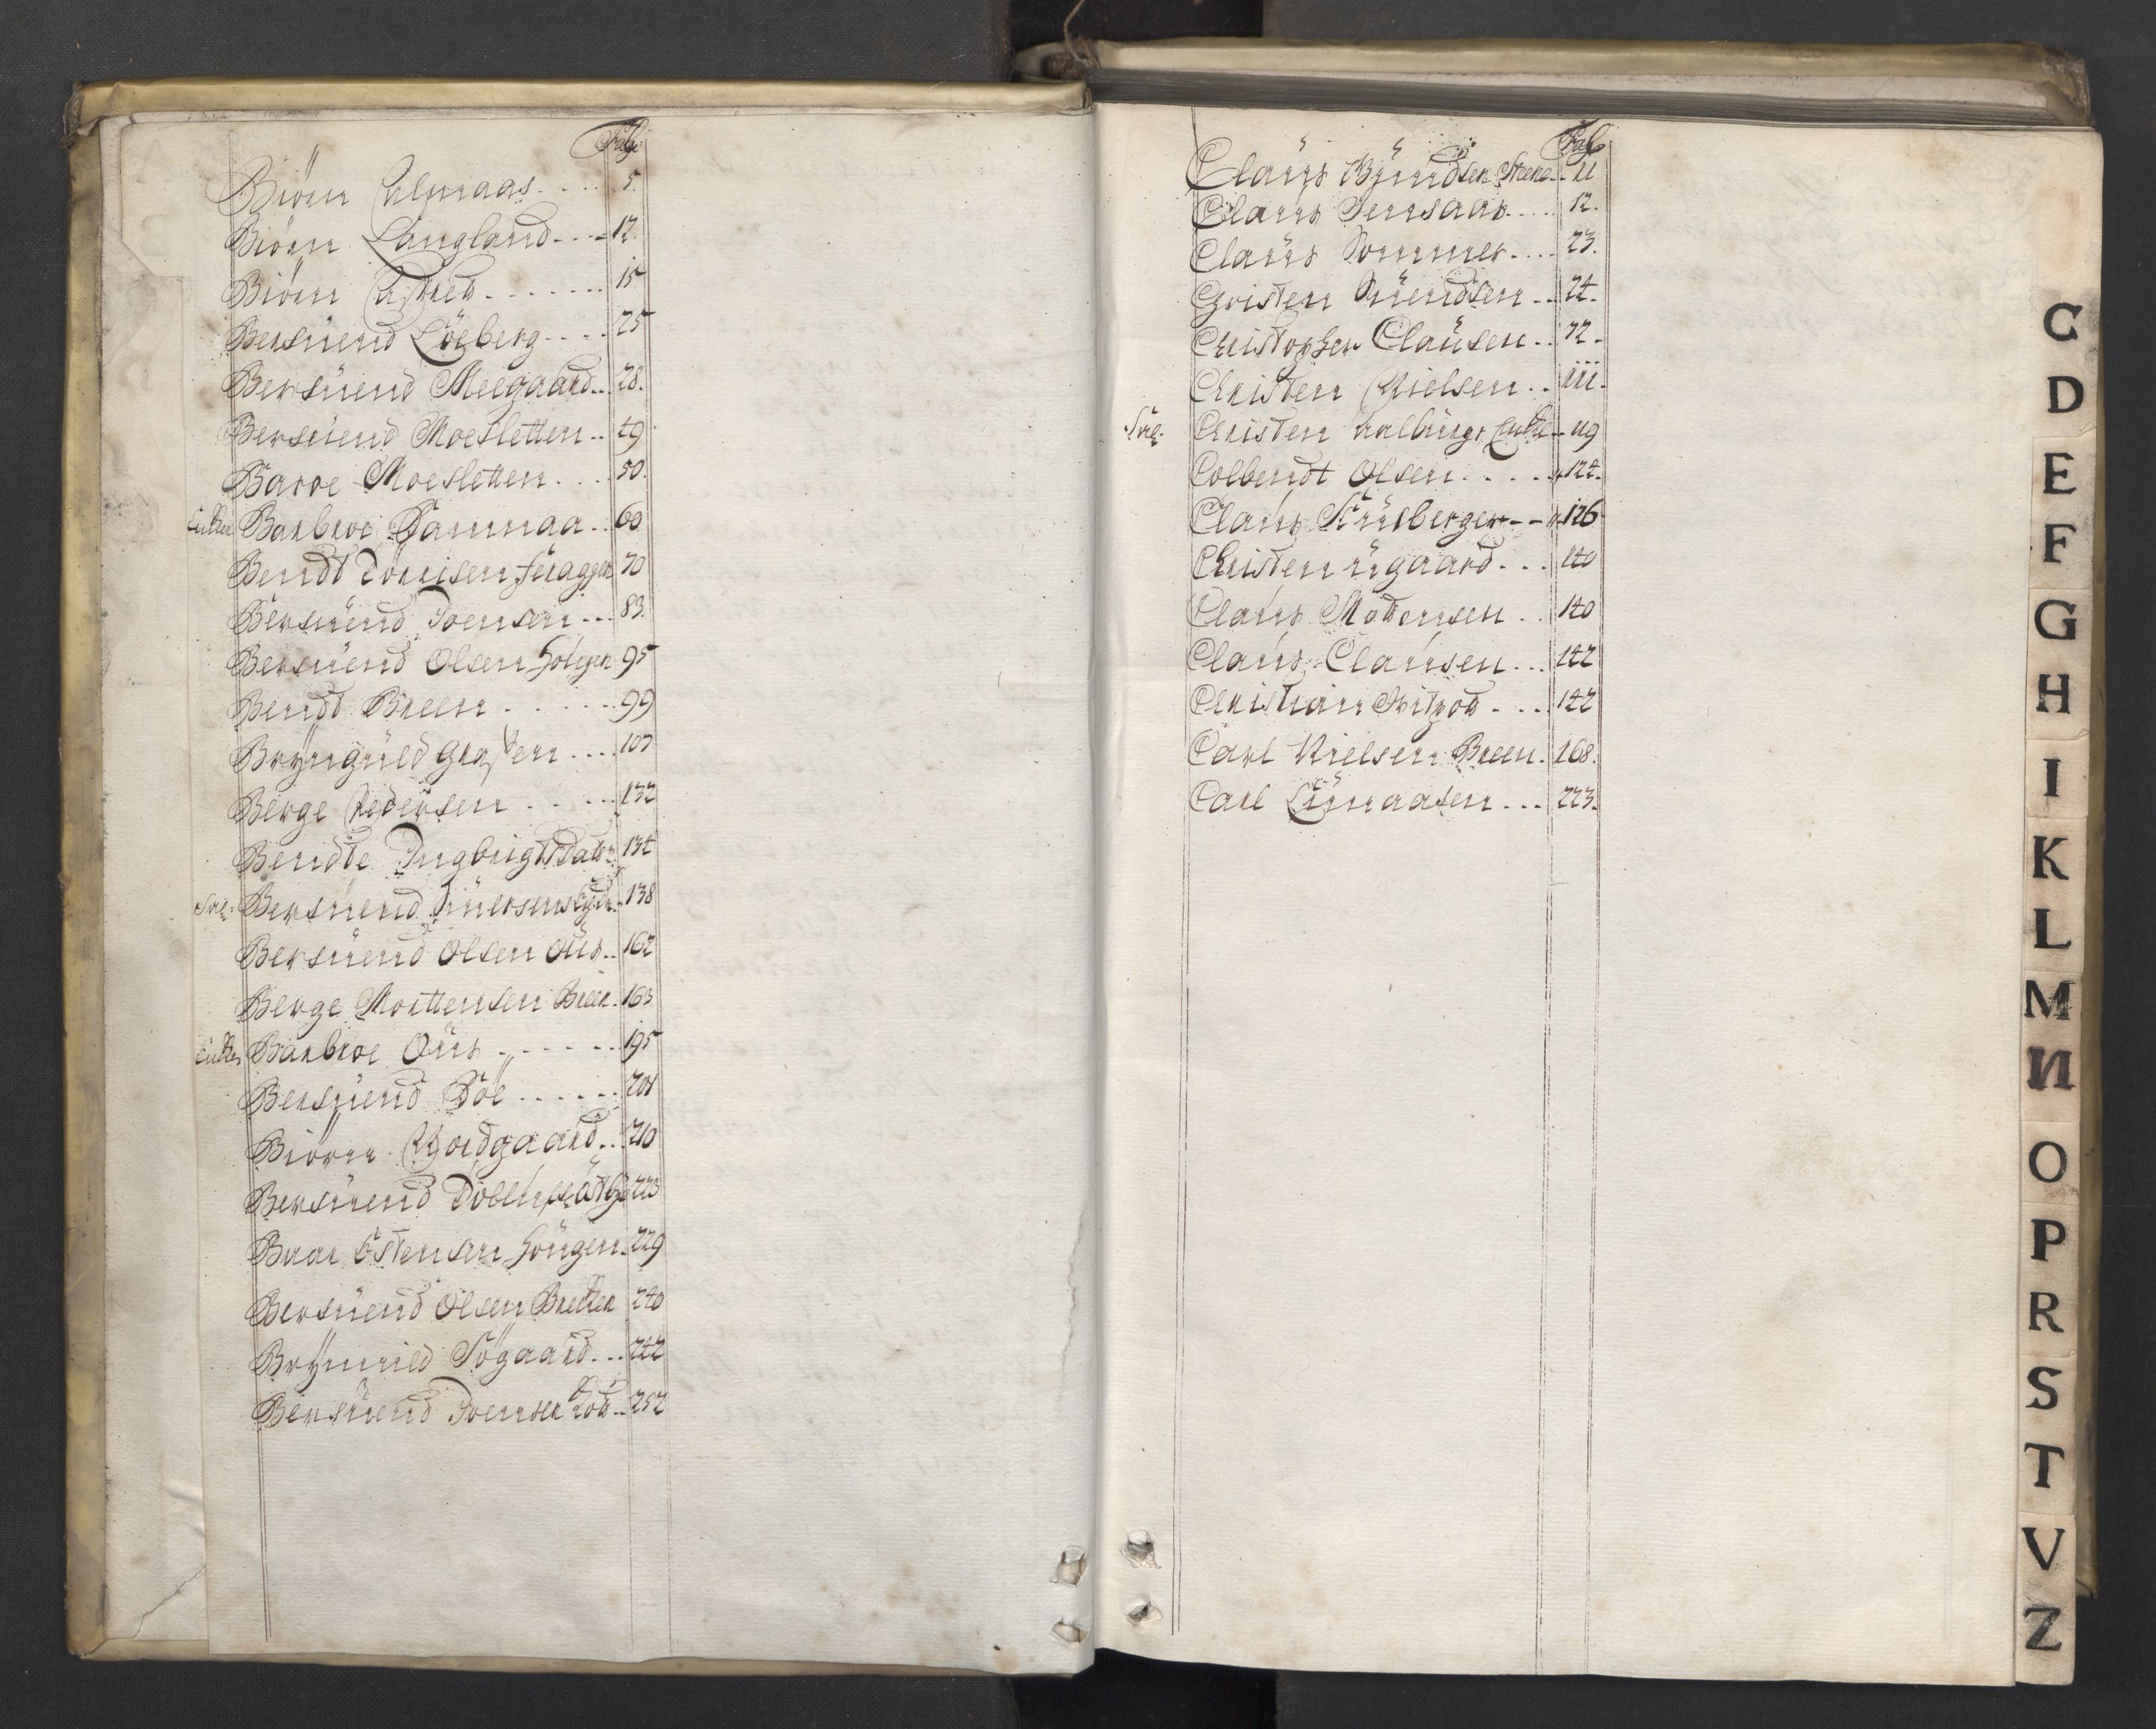 Folj
Biörn Almaas.... 5.
Biörn Langland... 12.
Biörn 15
Bersüend Löeberg.... 25
Bersüend Meegaard.. 28.
Bersüend Moesletten.. 49
Baroe Moesletten... 50.
Enken Barbroe Hammaa.. 60
Bendt Tönnisen 70
Bersüend Joensen... 83.
Bersüend Olsen Hougen 95
Bendt Breen...... 99
Brÿngüld Grassen.... 107
Berge Pedersen..... 132
Bendte Ingbrigtsdater 134
Sal: Bersüend Siüersens 138
Bersüend Olsen Aüs.. 162
Berge Morttensen Breen. 163
Enken Barbroe Aüs...... 195
Bersüend Böe...... 201
Biörn Nordgaard.. 210
Bersüend 223
Baar Östensen Hougen. 229
Bersüend Olsen Bretten 240
Brÿnnild Söegaard... 242
Bersüend Joensen 252
Folj
Claüs Steene.. 11
Claüs Jensaas..... 12.
Claüs Sommer.... 23.
Christen Süendsen.. 24.
Christopher Claüsen.. 72.
Christen Nielsen.. 111.
Sal: Christen Aalbürgs Enke 119
Colbendt Olsen..... 124.
Claüs Stüsberger-- 126
Christen Ügaard... 140
Claüs Madensen.. 140
Claüs Claüsen... 142
Christian.... 142
Carl Nielsen Breen. 168.
Carl Lünaasen... 223.
C
D
E
F
G
H
I
K
L
M
N
O
P
R
S
T
V
Z